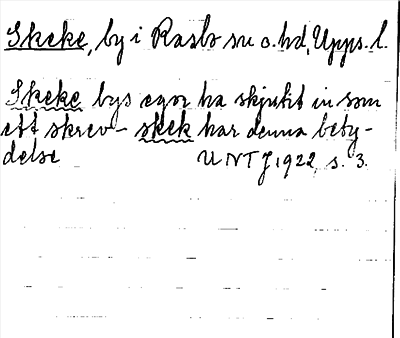 Skeke, by i Rasbo sn o. hd, Upps. l.
Skeke bys ägor ha skjutit in som
ett skrev – skek har denna bety-
delse UNT J 1922, s. 3.